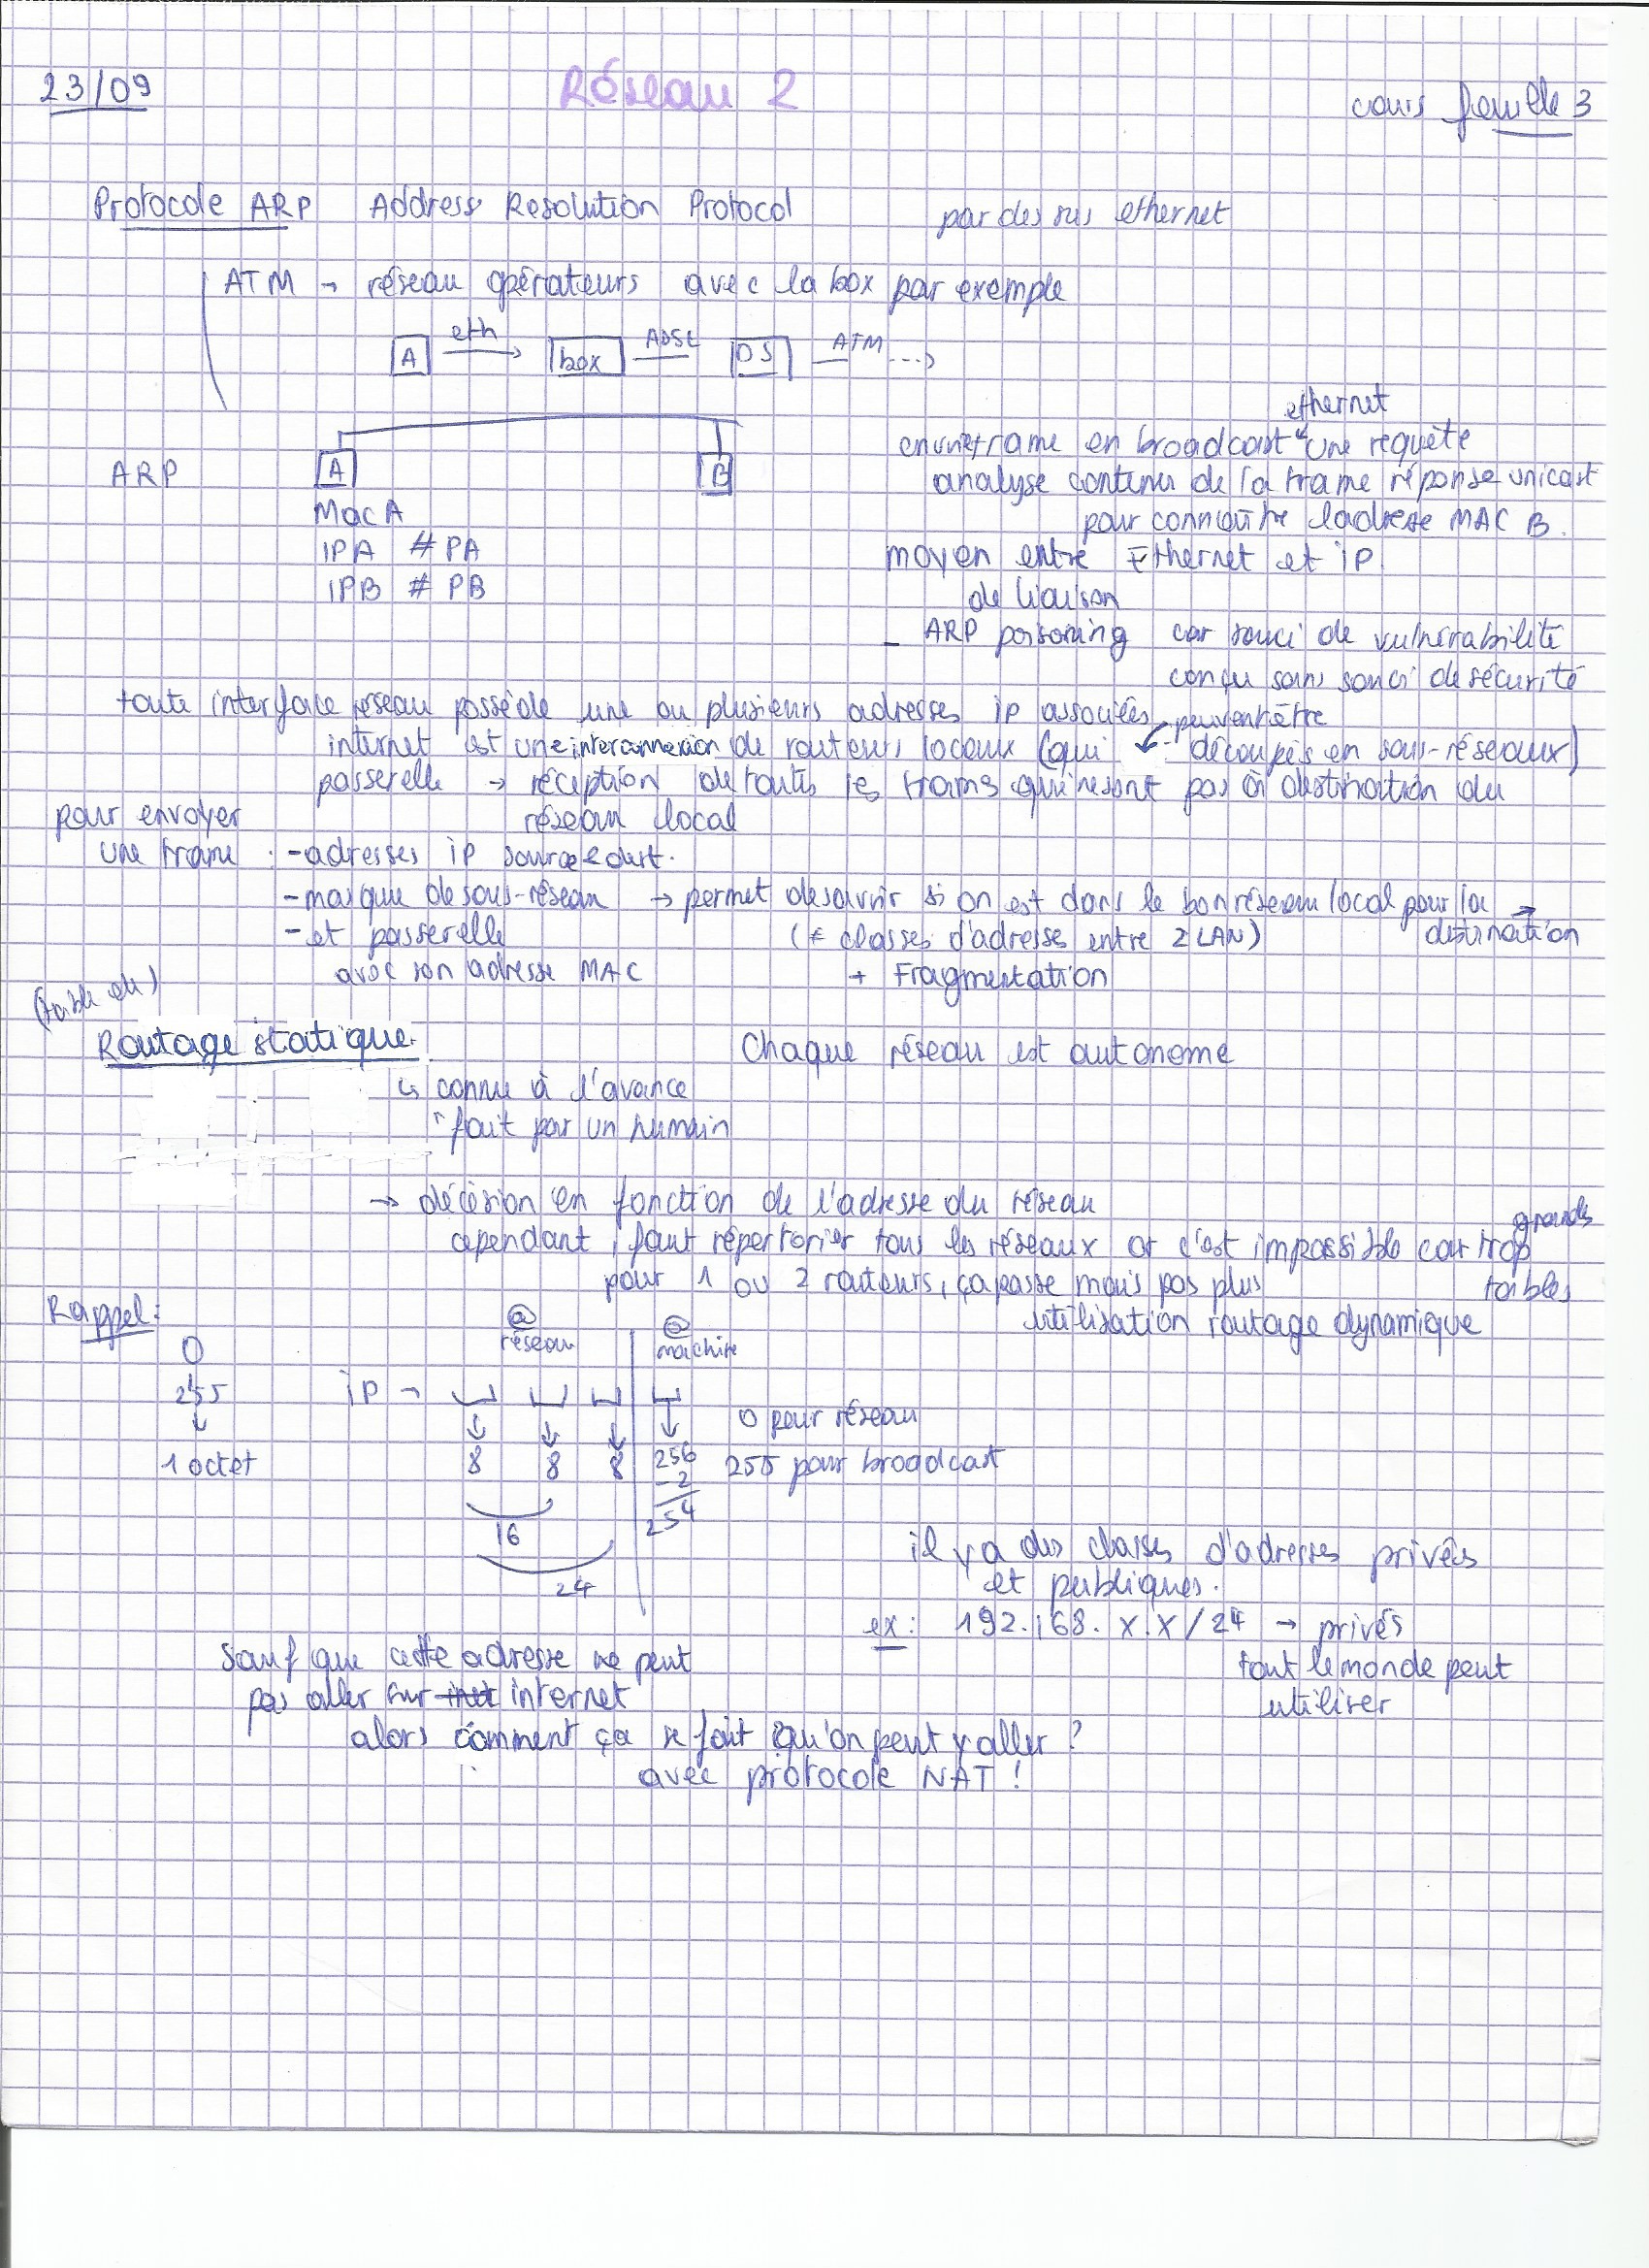 23/09
Réseau 2
cours feuille 3
Protocole ARP Address Resolution Protocol par dessus ethernet
ATM → réseau opérateurs avec la box par exemple
A eth box ADSL DS ATM
ethernet
ARP A B
trame en broadcast une requête
analyse contenu de la trame réponse unicast
pour connaître l'adresse MAC B.
Mac A
IPA # PA
IPB # PB
moyen entre Ethernet et iP
de liaison
- ARP poisoning car souci de vulnérabilité
conçu sans souci de sécurité
toute interface réseau possède une ou plusieurs adresses ip associées
internet est une interconnexion de routeurs locaux (qui peuvent être découpés en sous-réseaux)
passerelle → réception de toutes les trames qui ne sont pas à destination du
réseau local
pour envoyer
une trame : - adresses iP source & dest.
- masque de sous-réseau → permet de savoir si on est dans le bon réseau local pour la →
destination
- et passerelle (≠ classes d'adresse entre 2 LAN)
avec son adresse MAC + Fragmentation
(table du)
Routage statique. Chaque réseau est autonome
↳ connu à l'avance
" fait par un humain
→ décision en fonction de l'adresse du réseau
cependant, faut répertorier tous les réseaux or c'est impossible car trop grandes
tables
pour 1 ou 2 routeurs, ça passe mais pas plus
utilisation routage dynamique
Rappel :
@ réseau @ machine
0
↓
255 ip →
↓
1 octet 8 8 8 256
- 2
254
0 pour réseau
255 pour broadcast
16
24
il y a des classes d'adresses privées
et publiques.
ex : 192.168.X.X/24 → privés
tout le monde peut
utiliser
Sauf que cette adresse ne peut
pas aller sur inet internet
alors comment ça se fait qu'on peut y aller ?
avec protocole NAT !